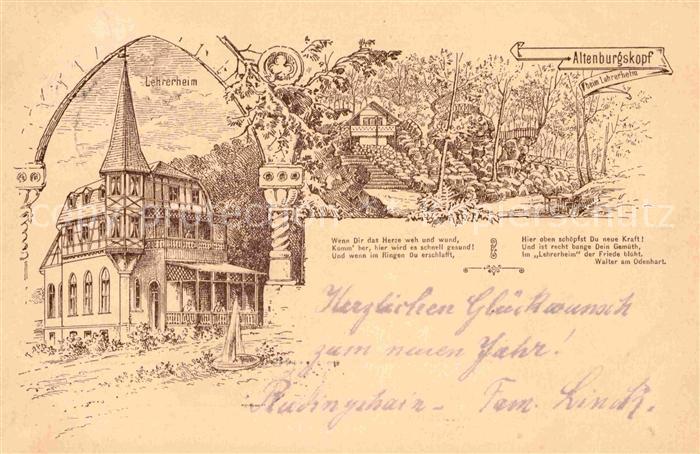 Lehrerheim
Altenburgskopf
beim Lehrerheim
Wenn Dir das Herze weh und wund,
Komm' her, hier wird es schnell gesund!
Und wenn im Ringen Du erschlafft,
Hier oben schöpfst Du neue Kraft!
Und ist recht bange Dein Gemüth,
Im „Lehrerheim" der Friede blüht.
Walter am Odenhart.
Herzlichen Glückwunsch
zum neuen Jahr!
Rudingshain - Fam. Linck.